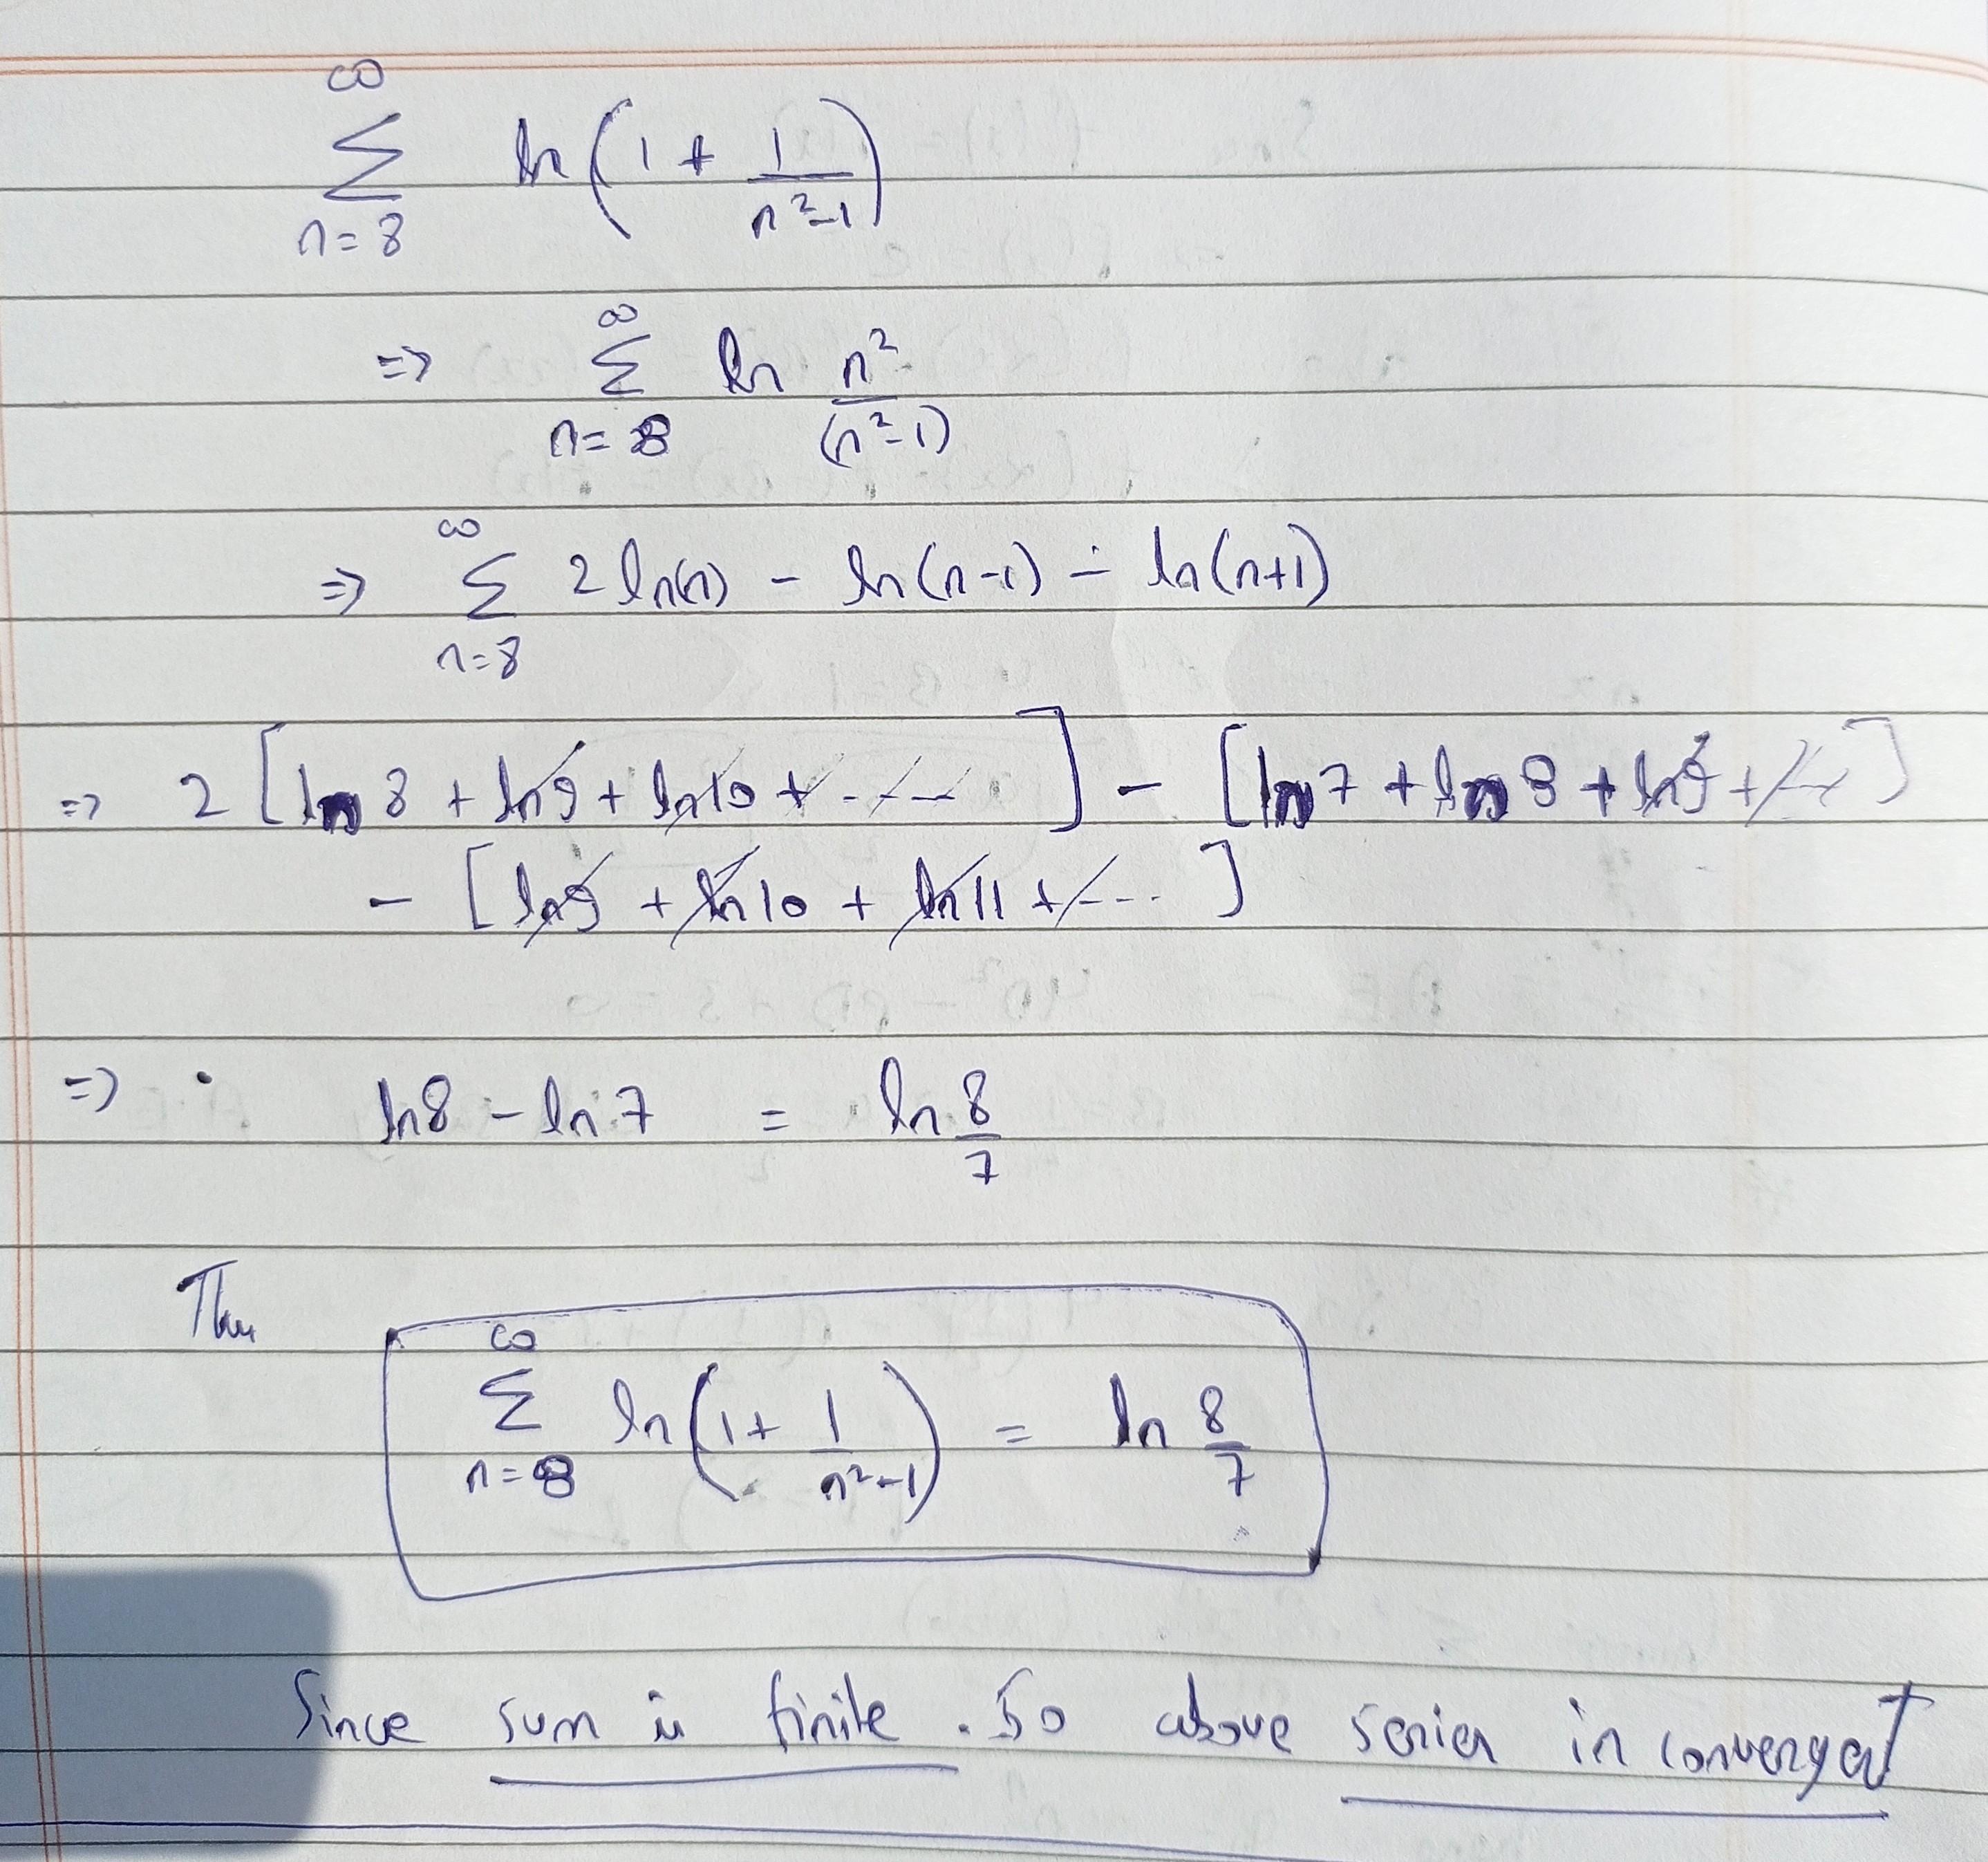 ∞
Σ ln(1 + 1/(n²-1))
n=8
∞
=> Σ ln n²/(n²-1)
n=8
∞
=> Σ 2 ln(n) - ln(n-1) - ln(n+1)
n=8
=> 2 [ln 8 + ln 9 + ln 10 + ------] - [ln 7 + ln 8 + ln 9 + --]
- [ln 9 + ln 10 + ln 11 + ---]
=> ln 8 - ln 7 = ln 8/7
∞
Σ ln(1 + 1/(n²-1)) = ln 8/7
n=8
Since sum is finite. So above series in convergent